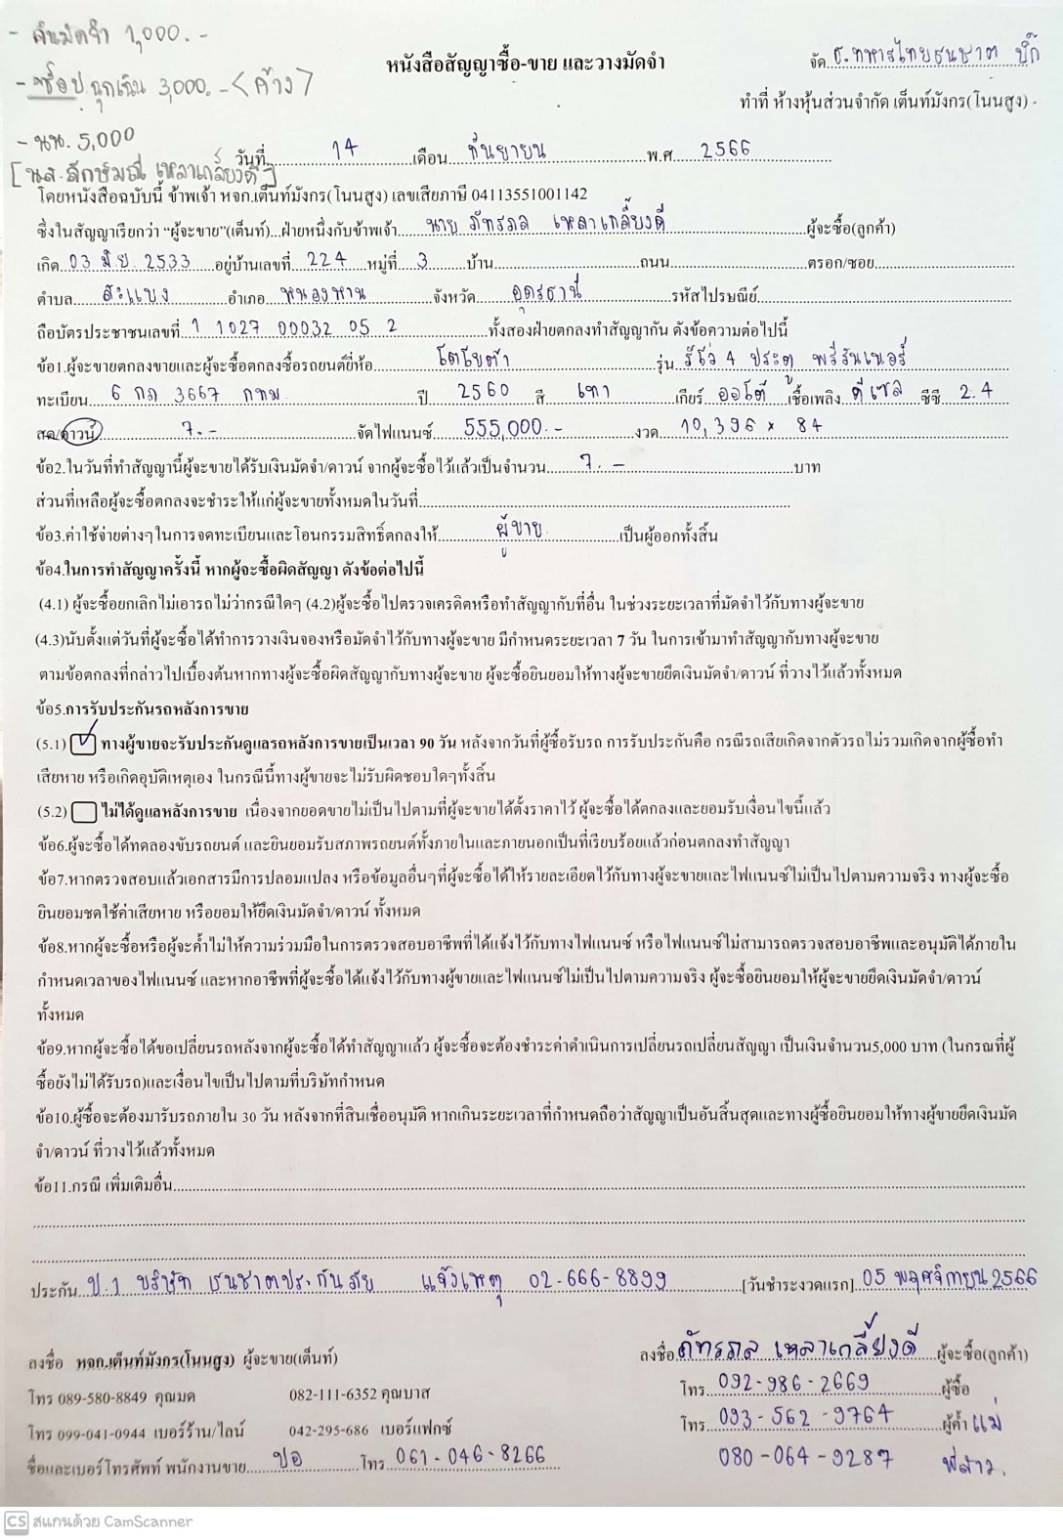 - คืนมัดจำ 1,000.-
- ช็อป ฉุกเฉิน 3,000.- <ค้าง>
- นน. 5,000
[นส.ลักษ์มณี เหลาเกลี้ยงดี]
หนังสือสัญญาซื้อ-ขาย และวางมัดจำ
จัด ธ.ทหารไทยธนชาต บิ๊ก
ทำที่ ห้างหุ้นส่วนจำกัด เต็นท์มังกร(โนนสูง)
วันที่ 14 เดือน กันยายน พ.ศ 2566
โดยหนังสือฉบับนี้ ข้าพเจ้า หจก.เต็นท์มังกร(โนนสูง) เลขเสียภาษี 04113551001142
ซึ่งในสัญญาเรียกว่า "ผู้จะขาย"(เต็นท์)...ฝ่ายหนึ่งกับข้าพเจ้า นาย ภัทรภล เหลาเกลี้ยงดี ผู้จะซื้อ(ลูกค้า)
เกิด 03 มิ.ย. 2533 อยู่บ้านเลขที่ 224 หมู่ที่ 3 บ้าน ถนน ตรอก/ซอย
ตำบล สะแบง อำเภอ หนองหาน จังหวัด อุดรธานี รหัสไปรษณีย์
ถือบัตรประชาชนเลขที่ 1 1027 00032 05 2 ทั้งสองฝ่ายตกลงทำสัญญากัน ดังข้อความต่อไปนี้
ข้อ1.ผู้จะขายตกลงขายและผู้จะซื้อตกลงซื้อรถยนต์ยี่ห้อ โตโยต้า รุ่น รีโว่ 4 ประตู พรีรันเนอร์
ทะเบียน 6 กภ 3667 กทม ปี 2560 สี เทา เกียร์ ออโต้ เชื้อเพลิง ดีเซล ซีซี 2.4
สด/ดาวน์ 7.- จัดไฟแนนซ์ 555,000.- งวด 10,396 x 84
ข้อ2.ในวันที่ทำสัญญานี้ผู้จะขายได้รับเงินมัดจำ/ดาวน์ จากผู้จะซื้อไว้แล้วเป็นจำนวน 7.- บาท
ส่วนที่เหลือผู้จะซื้อตกลงจะชำระให้แก่ผู้จะขายทั้งหมดในวันที่
ข้อ3.ค่าใช้จ่ายต่างๆในการจดทะเบียนและโอนกรรมสิทธิ์ตกลงให้ ผู้ขาย เป็นผู้ออกทั้งสิ้น
ข้อ4.ในการทำสัญญาครั้งนี้ หากผู้จะซื้อผิดสัญญา ดังข้อต่อไปนี้
(4.1) ผู้จะซื้อยกเลิกไม่เอารถไม่ว่ากรณีใดๆ (4.2)ผู้จะซื้อไปตรวจเครดิตหรือทำสัญญากับที่อื่น ในช่วงระยะเวลาที่มัดจำไว้กับทางผู้จะขาย
(4.3)นับตั้งแต่วันที่ผู้จะซื้อได้ทำการวางเงินจองหรือมัดจำไว้กับทางผู้จะขาย มีกำหนดระยะเวลา 7 วัน ในการเข้ามาทำสัญญากับทางผู้จะขาย
ตามข้อตกลงที่กล่าวไปเบื้องต้นหากทางผู้จะซื้อผิดสัญญากับทางผู้จะขาย ผู้จะซื้อยินยอมให้ทางผู้จะขายยึดเงินมัดจำ/ดาวน์ ที่วางไว้แล้วทั้งหมด
ข้อ5.การรับประกันรถหลังการขาย
(5.1) ทางผู้ขายจะรับประกันดูแลรถหลังการขายเป็นเวลา 90 วัน หลังจากวันที่ผู้ซื้อรับรถ การรับประกันคือ กรณีรถเสียเกิดจากตัวรถไม่รวมเกิดจากผู้ซื้อทำ
เสียหาย หรือเกิดอุบัติเหตุเอง ในกรณีนี้ทางผู้ขายจะไม่รับผิดชอบใดๆทั้งสิ้น
(5.2) ไม่ได้ดูแลหลังการขาย เนื่องจากยอดขายไม่เป็นไปตามที่ผู้จะขายได้ตั้งราคาไว้ ผู้จะซื้อได้ตกลงและยอมรับเงื่อนไขนี้แล้ว
ข้อ6.ผู้จะซื้อได้ทดลองขับรถยนต์ และยินยอมรับสภาพรถยนต์ทั้งภายในและภายนอกเป็นที่เรียบร้อยแล้วก่อนตกลงทำสัญญา
ข้อ7.หากตรวจสอบแล้วเอกสารมีการปลอมแปลง หรือข้อมูลอื่นๆที่ผู้จะซื้อได้ให้รายละเอียดไว้กับทางผู้จะขายและไฟแนนซ์ไม่เป็นไปตามความจริง ทางผู้จะซื้อ
ยินยอมชดใช้ค่าเสียหาย หรือยอมให้ยึดเงินมัดจำ/ดาวน์ ทั้งหมด
ข้อ8.หากผู้จะซื้อหรือผู้จะค้ำไม่ให้ความร่วมมือในการตรวจสอบอาชีพที่ได้แจ้งไว้กับทางไฟแนนซ์ หรือไฟแนนซ์ไม่สามารถตรวจสอบอาชีพและอนุมัติได้ภายใน
กำหนดเวลาของไฟแนนซ์ และหากอาชีพที่ผู้จะซื้อได้แจ้งไว้กับทางผู้ขายและไฟแนนซ์ไม่เป็นไปตามความจริง ผู้จะซื้อยินยอมให้ผู้จะขายยึดเงินมัดจำ/ดาวน์
ทั้งหมด
ข้อ9.หากผู้จะซื้อได้ขอเปลี่ยนรถหลังจากผู้จะซื้อได้ทำสัญญาแล้ว ผู้จะซื้อจะต้องชำระค่าดำเนินการเปลี่ยนรถเปลี่ยนสัญญา เป็นเงินจำนวน5,000 บาท (ในกรณที่ผู้
ซื้อยังไม่ได้รับรถ)และเงื่อนไขเป็นไปตามที่บริษัทกำหนด
ข้อ10.ผู้ซื้อจะต้องมารับรถภายใน 30 วัน หลังจากที่สินเชื่ออนุมัติ หากเกินระยะเวลาที่กำหนดถือว่าสัญญาเป็นอันสิ้นสุดและทางผู้ซื้อยินยอมให้ทางผู้ขายยึดเงินมัด
จำ/ดาวน์ ที่วางไว้แล้วทั้งหมด
ข้อ11.กรณี เพิ่มเติมอื่น
ประกัน ป.1 บริษัท ธนชาตประกันภัย แจ้งเหตุ 02-666-8899 [วันชำระงวดแรก] 05 พฤศจิกายน 2566
ลงชื่อ หจก.เต็นท์มังกร(โนนสูง) ผู้จะขาย(เต็นท์)
ลงชื่อ ภัทรภล เหลาเกลี้ยงดี ผู้จะซื้อ(ลูกค้า)
โทร 089-580-8849 คุณมด 082-111-6352 คุณบาส
โทร 092-986-2669 ผู้ซื้อ
โทร 099-041-0944 เบอร์ร้าน/ไลน์ 042-295-686 เบอร์แฟกซ์
โทร 093-562-9764 ผู้ค้ำ แม่
ชื่อและเบอร์โทรศัพท์ พนักงานขาย ปอ โทร 061-046-8266
080-064-9287 พี่สาว.
CS สแกนด้วย CamScanner